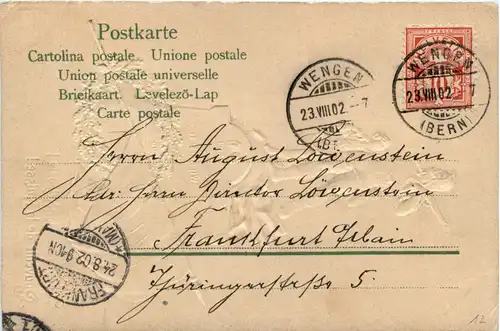 Postkarte
Cartolina postale. Unione postale
Union postale universelle
Briefkaart. Levelező-Lap
Carte postale
WENGEN
23.VIII.02.–7
(BE
WENGEN
23.VIII.02.–7
(BERN)
10
Herrn August Löwenstein
bei Herrn Director Löwenstein
Frankfurt Main
Thüringerstraße 5
FRANKFURT
24.8.02.9-10N
(MAIN)
12